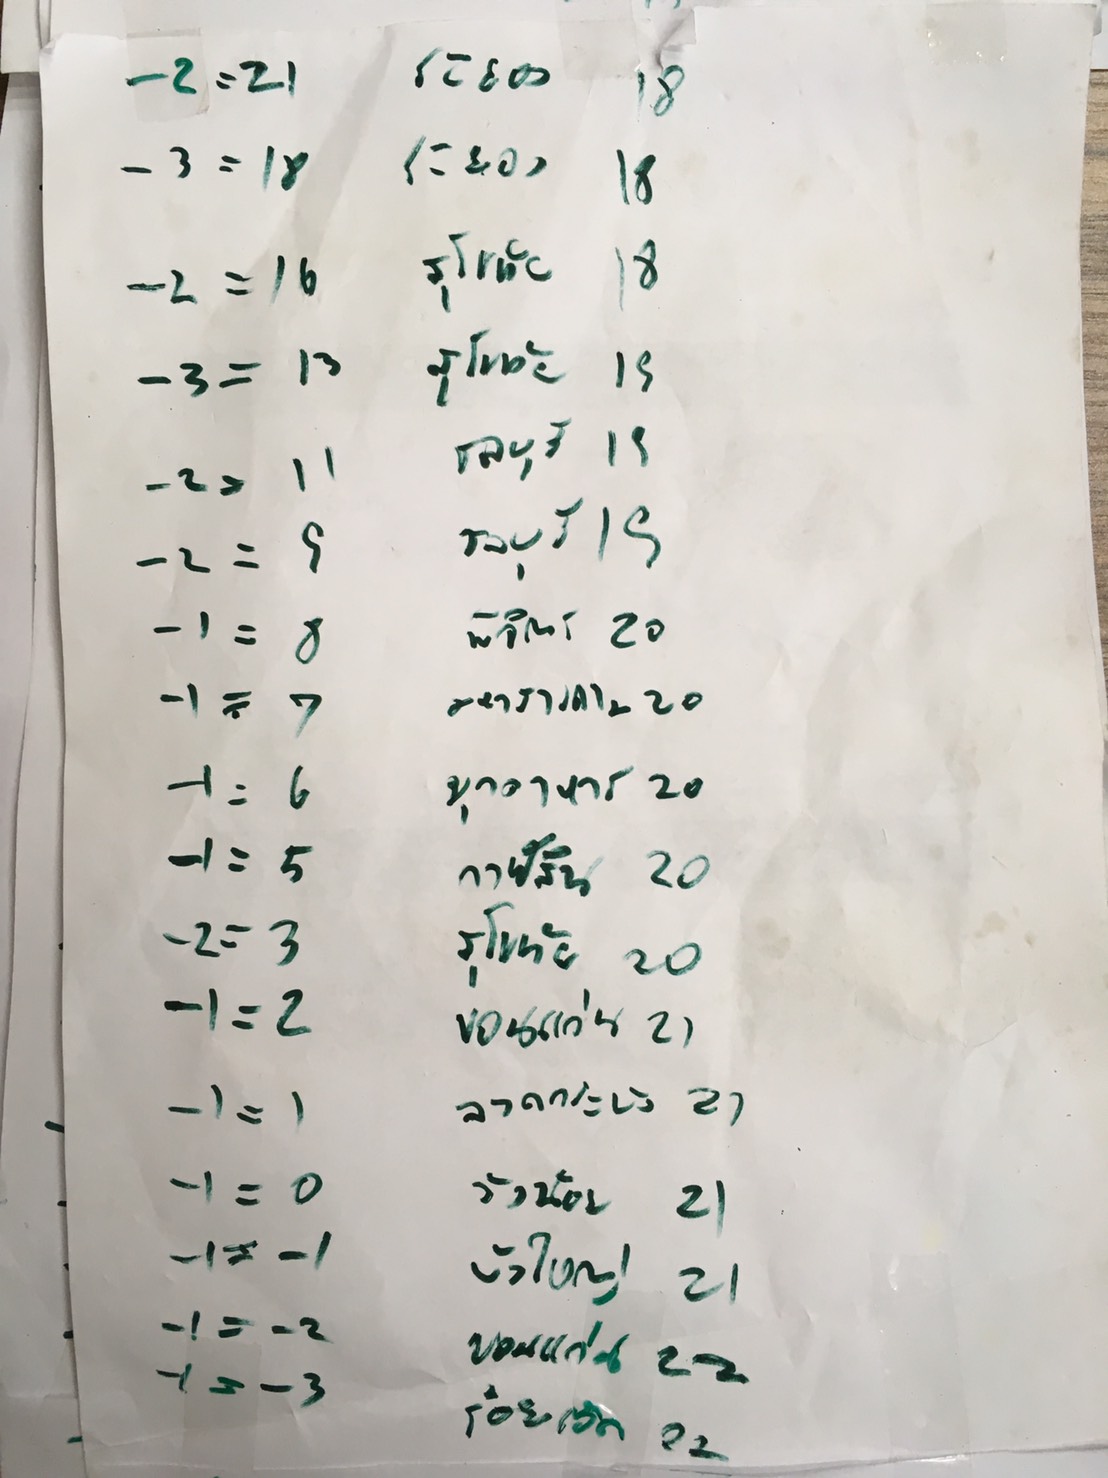 -2 = 21 ระยอง 18
-3 = 18 ระยอง 18
-2 = 16 สุโขทัย 18
-3 = 13 สุโขทัย 19
-2 = 11 ชลบุรี 19
-2 = 9 ชลบุรี 19
-1 = 8 พิจิตร 20
-1 = 7 มหาสารคาม 20
-1 = 6 มุกดาหาร 20
-1 = 5 กาฬสิน 20
-2 = 3 สุโขทัย 20
-1 = 2 ขอนแก่น 21
-1 = 1 ลาดกระบัง 21
-1 = 0 วังน้อย 21
-1 = -1 บัวใหญ่ 21
-1 = -2 ขอนแก่น 22
-1 = -3 ร้อยเอ็ด 22